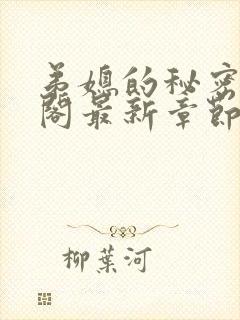 弟媳的秘密
阁最新章節
柳葉河